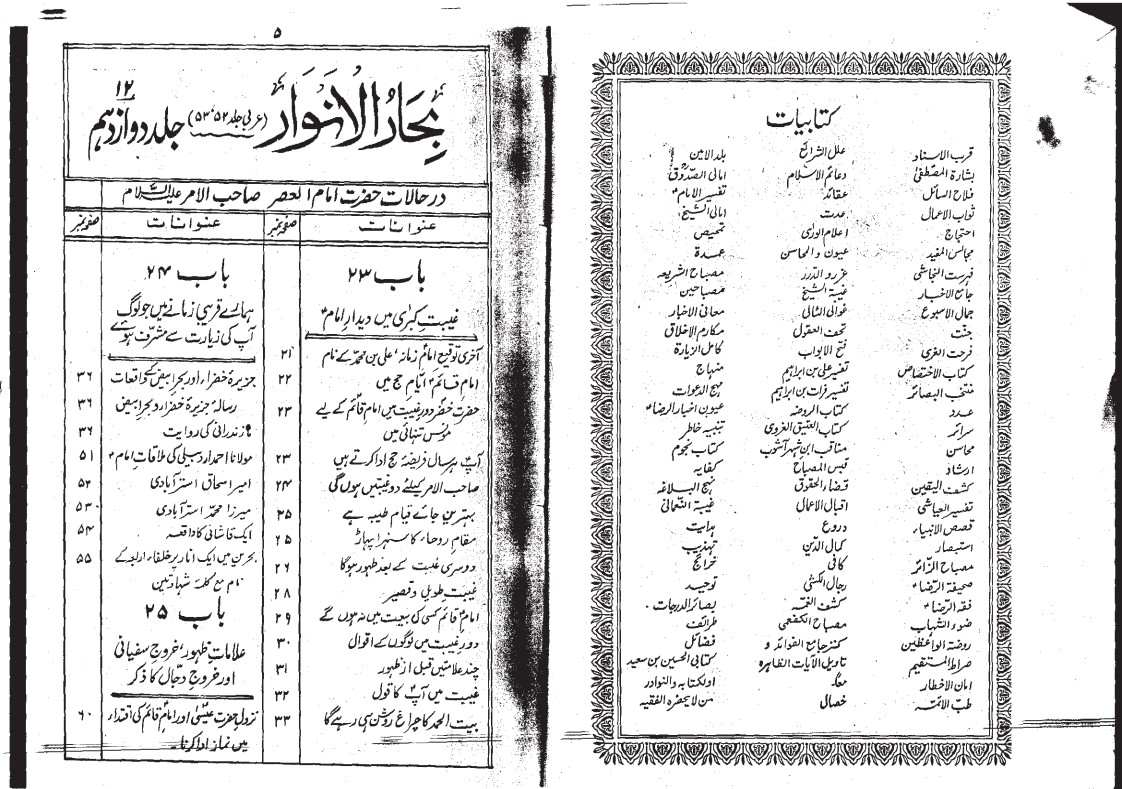 کتابیات
قرب الاسناد
بشارۃ المصطفیٰ
فلاح السائل
ثواب الاعمال
احتجاج
مجالس المفید
فہرست النجاشی
جامع الاخبار
جمال الاسبوع
جنت
فرحت الغری
کتاب الاختصاص
منتخب البصائر
عدد
سرائر
محاسن
ارشاد
کشف الیقین
تفسیر العیاشی
قصص الانبیاء
استبصار
مصباح الزائر
صحیفۃ الرضاؑ
فقہ الرضاؑ
ضوء الشہاب
روضۃ الواعظین
صراط المستقیم
امان الاخطار
طب الائمہ
علل الشرائع
دعائم الاسلام
عقائد
عدت
اعلام الوریٰ
عیون والمحاسن
غرر والدرر
غیبۃ الشیخ
غوالی اللئالی
تحف العقول
فتح الابواب
تفسیر علی بن ابراہیم
تفسیر فرات بن ابراہیم
کتاب الروضہ
کتاب العتیق الغروی
مناقب ابن شہر آشوب
قبس المصباح
قضاء الحقوق
اقبال الاعمال
دروع
کمال الدین
کافی
رجال الکشی
کشف الغمہ
مصباح الکفعمی
کنز جامع الفوائد و
تاویل الآیات الظاہرہ
خصال
بلد الامین
امالی الصدوق
تفسیر الامامؑ
امالی الشیخ
تمحیص
عمدۃ
مصباح الشریعہ
مصباحین
معانی الاخبار
مکارم الاخلاق
کامل الزیارۃ
منہاج
مہج الدعوات
عیون اخبار الرضاؑ
تنبیہ خاطر
کتاب نجوم
کفایہ
نہج البلاغہ
غیبۃ النعمانی
ہدایت
تہذیب
خرائج
توحید
بصائر الدرجات
طرائف
فضائل
کتابی الحسین بن سعید
اولکتابہ والنوادر
من لا یحضرہ الفقیہ
۵
بِحَارُ الاَنوَار (عربی جلد ۵۲، ۵۳) جلد دوازدہم ۱۲
در حالات حضرت امام العصر صاحب الامر علیہ السلام
عنوانات صفحہ نمبر
باب ۲۳
غیبت کبریٰ میں دیدارِ امامؑ
آخری توقیع امام زمانہ، علی بن محمد کے نام ۲۱
امام قائمؑ ایام حج میں ۲۲
حضرت خضرؑ دورِ غیبت میں امام قائمؑ کے لیے ۲۳
مونس تنہائی ہیں
آپؑ ہر سال فریضۂ حج ادا کرتے ہیں ۲۳
صاحب الامر کیلئے دو غیبتیں ہوں گی ۲۴
بہترین جائے قیام طیبہ ہے ۲۵
مقام روحاء کا سنہرا پہاڑ ۲۵
دوسری غیبت کے بعد ظہور ہوگا ۲۶
غیبت طویل و قصیر ۲۸
امام قائمؑ کسی کی بیعت میں نہ ہوں گے ۲۹
دورِ غیبت میں لوگوں کے اقوال ۳۰
چند علامتیں قبل از ظہور ۳۱
غیبت میں آپؑ کا قول ۳۲
بیت الحمد کا چراغ روشن ہی رہے گا ۳۳
عنوانات صفحہ نمبر
باب ۲۴
ہمارے قریبی زمانے میں جو لوگ
آپ کی زیارت سے مشرف ہوئے
جزیرۂ خضراء اور بحرِ ابیض کے واقعات ۳۶
رسالۂ جزیرۂ خضراء و بحرِ ابیض ۳۶
مازندرانی کی روایت ۳۶
مولانا احمد اردبیلی کی ملاقاتِ امامؑ ۵۱
امیر اسحاق استرآبادی ۵۲
میرزا محمد استرآبادی ۵۳
ایک قاشانی کا واقعہ ۵۴
بحرین میں ایک انار پر خلفاء اربعہ کے ۵۵
نام مع کلمۂ شہادتین
باب ۲۵
علاماتِ ظہور، خروج سفیانی
اور خروجِ دجّال کا ذکر
نزول حضرت عیسیٰؑ اور امام قائمؑ کی اقتدار ۶۰
میں نماز ادا کرنا